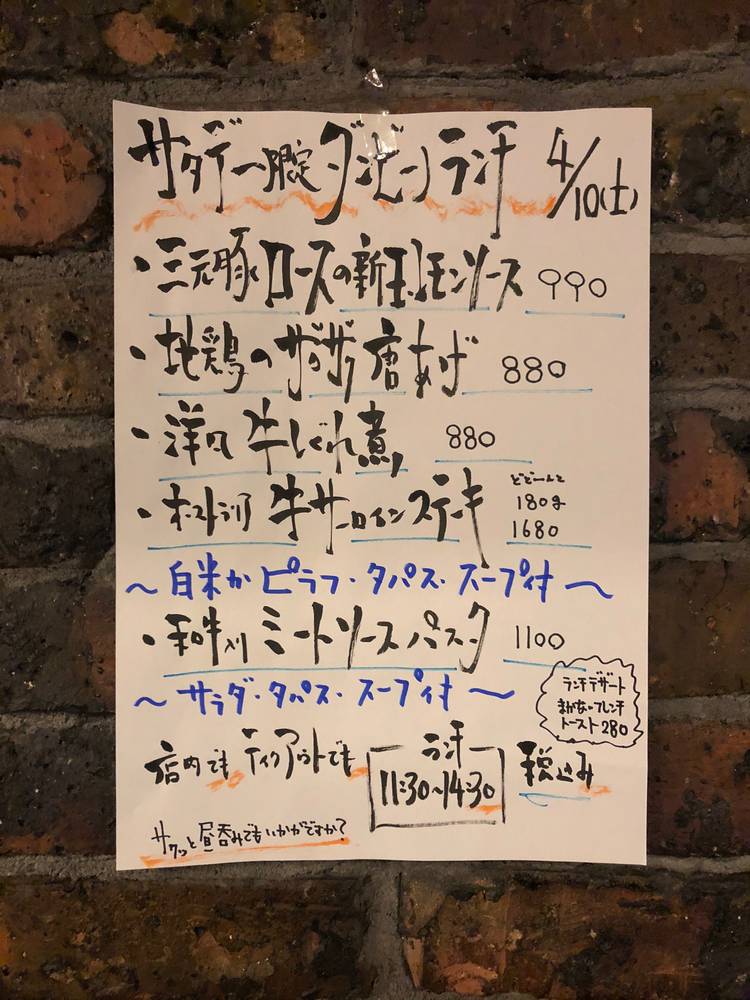 サタデー限定 ダンビーノランチ 4/10(土)
・三元豚ロースの新玉レモンソース 990
・地鶏のザクザク唐あげ 880
・洋風 牛しぐれ煮 880
・オーストラリア 牛サーロインステーキ どどーんと 180g 1680
〜白米かピラフ・タパス・スープ付〜
・和牛入りミートソースパスタ 1100
〜サラダ・タパス・スープ付〜
ランチデザート
まかないフレンチ
トースト 280
店内でもテイクアウトでも
ランチ
11:30~14:30
税込み
サクッと昼呑みでもいかがですか?